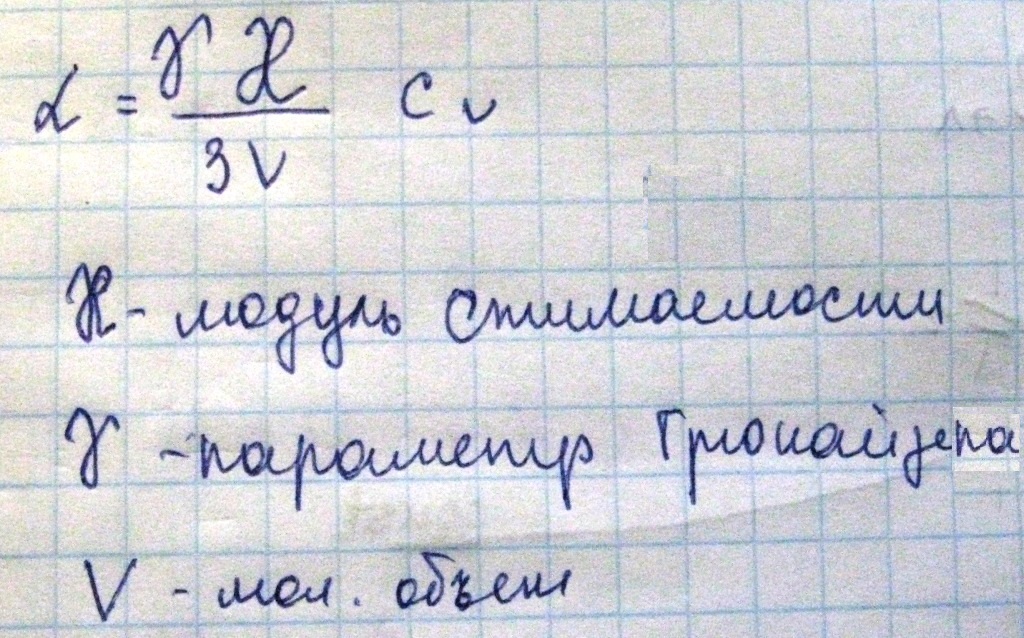 α = γ ϰ / 3V C v
ϰ - модуль сжимаемости
γ - параметр Грюнайзена
V - мол. объем